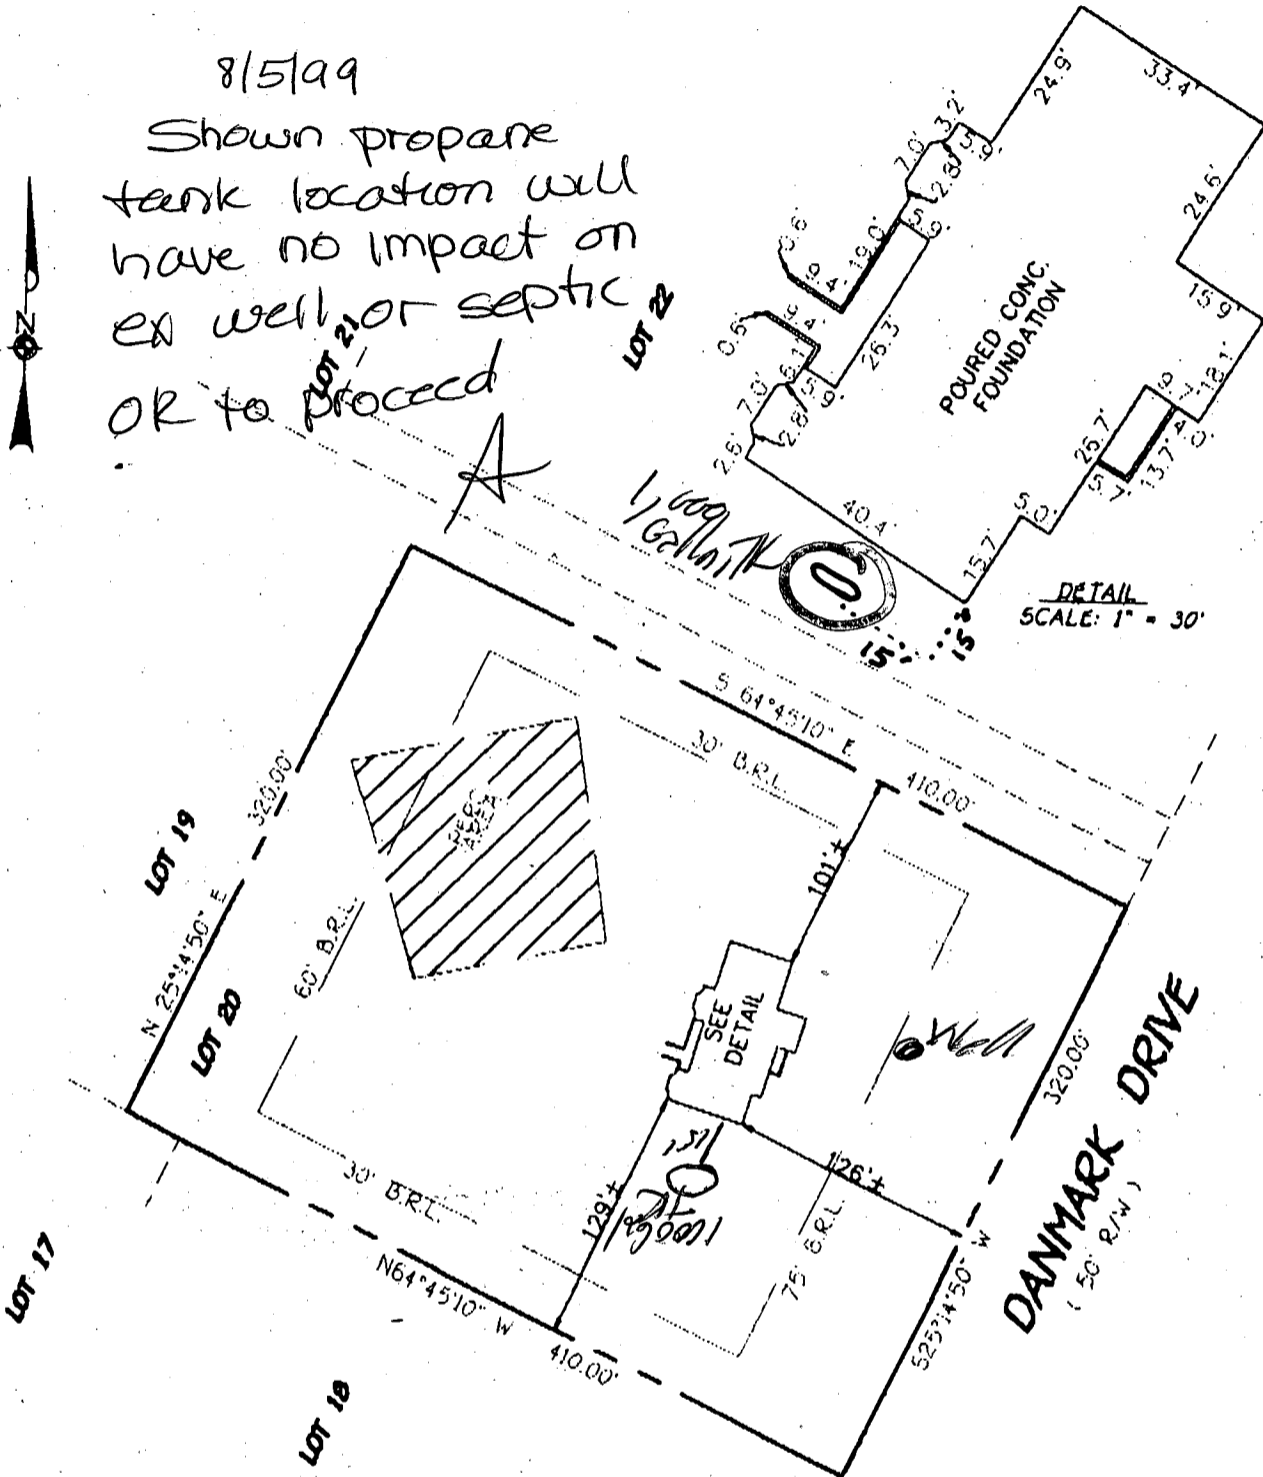 8/5/99
Shown propane
tank location will
have no impact on
ex well or septic
OK to proceed
N
LOT 21
LOT 22
24.9'
33.4'
24.6'
15.9'
18.1'
4.0'
13.7'
5.7'
26.7'
5.0'
15.7'
40.4'
2.6'
7.0'
2.8'
6.1'
9.4'
0.6'
26.3'
0.6'
9.4'
19.0'
7.0'
3.2'
2.8'
5.9'
POURED CONC.
FOUNDATION
1,000
Gallon TK
15'
15'
DETAIL
SCALE: 1" = 30'
S 64°45'10" E
410.00'
30' B.R.L.
320.00'
N 25°14'50" E
LOT 19
LOT 20
60' B.R.L.
PERC
AREA
101'±
SEE
DETAIL
Well
320.00'
S25°14'50" W
DANMARK DRIVE
( 50' R/W )
126'±
75' B.R.L.
15'
129'±
30' B.R.L.
N64°45'10" W
410.00'
LOT 17
LOT 18